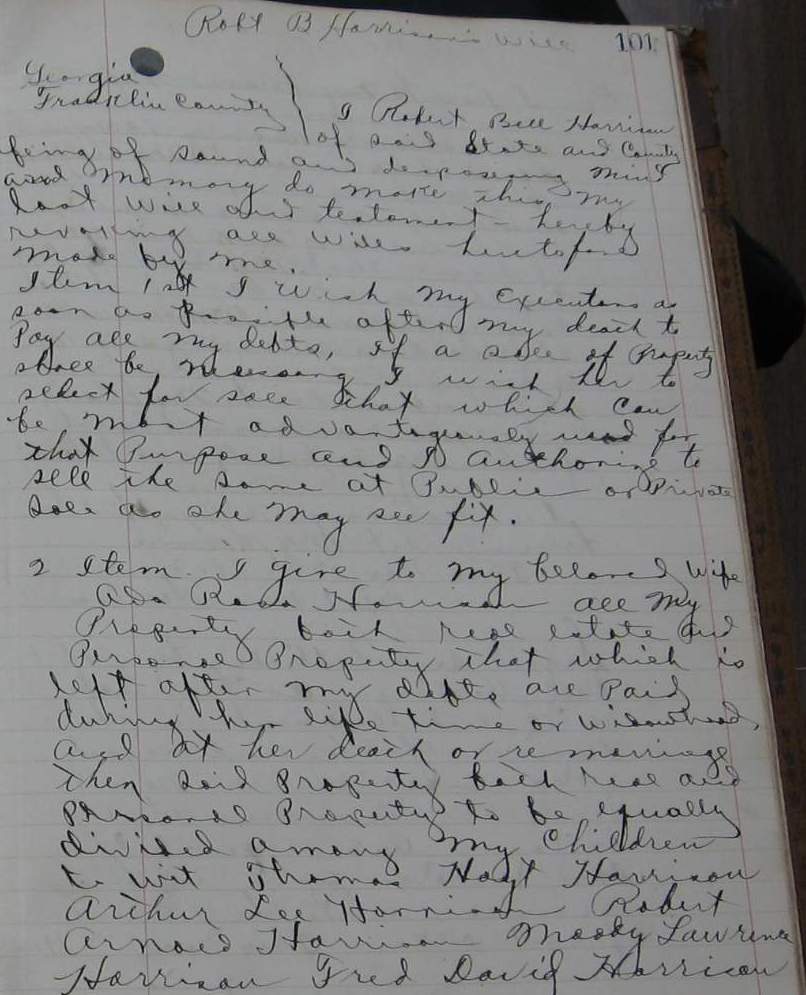 Robt B Harrison's Will 101
Georgia
Franklin County
I Robert Bell Harrison
of said State and County
being of sound and desposing mind
and memory do make this my
last will and testament hereby
revoking all wills heretofore
made by me.
Item 1st I wish my Executors as
soon as Possible after my death to
Pay all my debts, if a sale of Property
shall be necessary I wish her to
select for sale that which can
be most advantageously used for
that Purpose and I authorize to
sell the same at Public or Private
sale as she may see fit.
2 Item I give to my beloved wife
Ada Harrison all my
Property both real estate and
Personal Property that which is
left after my debts are Paid
during her life time or widowhood,
and at her death or remarriage
then said Property both real and
Personal Property to be equally
divided among my Children
to wit Thomas Hoyt Harrison
Arthur Lee Harrison Robert
Arnold Harrison Moody Lawrence
Harrison Fred David Harrison